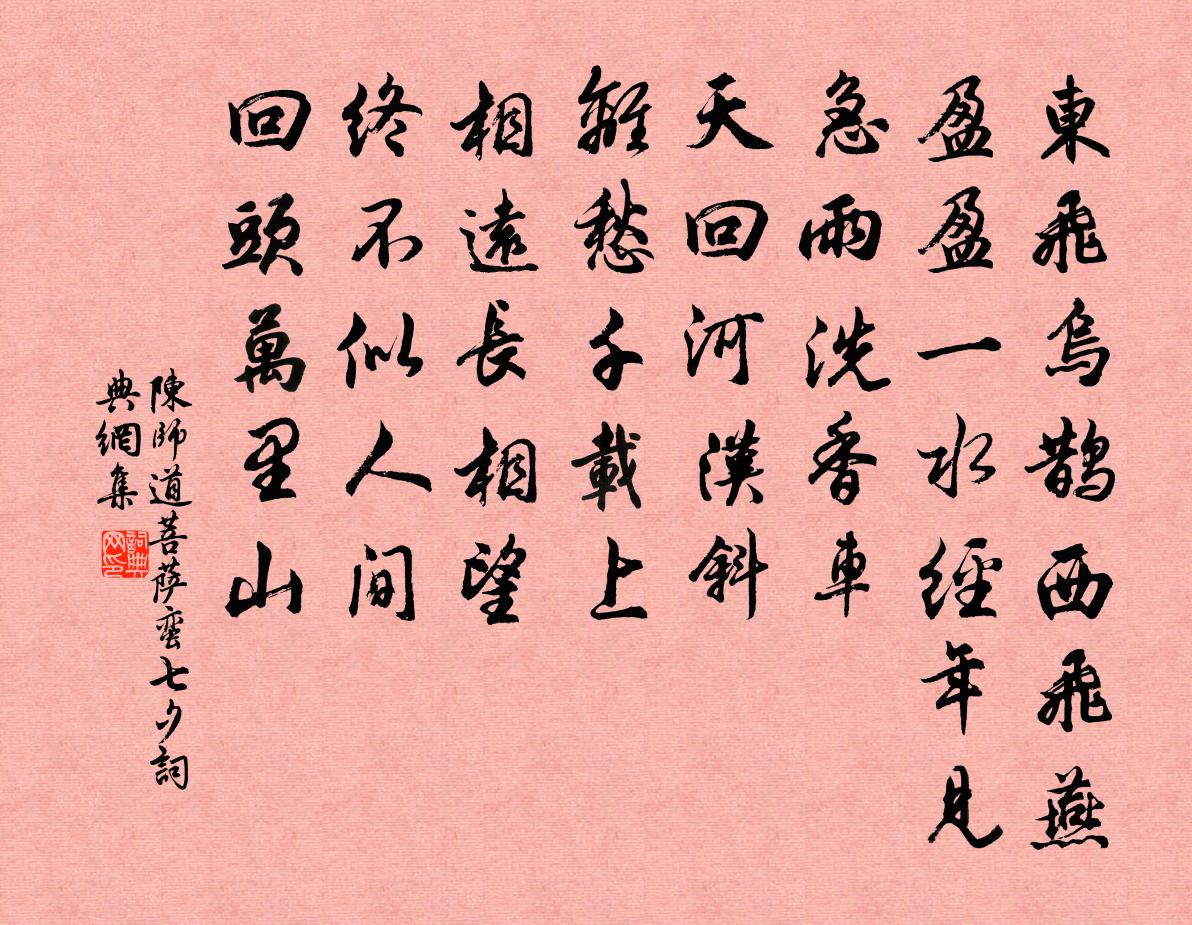 東飛烏鵲西飛燕
盈盈一水經年見
急雨洗香車
天回河漢斜
離愁千載上
相遠長相望
終不似人間
回頭萬里山
陳師道菩薩蛮七夕詞
典網集
詞典网印